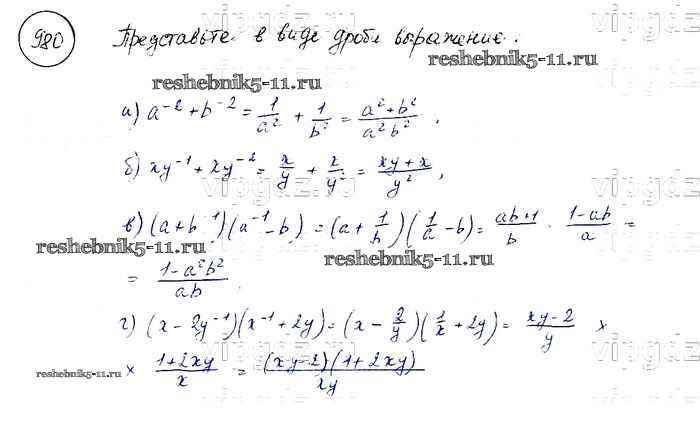 vipgdz.ru
980 Представьте в виде дроби выражение.
reshebnik5-11.ru
reshebnik5-11.ru
а) a⁻² + b⁻² = 1/a² + 1/b² = (a² + b²)/(a²b²),
б) xy⁻¹ + xy⁻² = x/y + x/y² = (xy + x)/y²,
в) (a + b⁻¹)(a⁻¹ - b) = (a + 1/b)(1/a - b) = (ab + 1)/b · (1 - ab)/a =
reshebnik5-11.ru
reshebnik5-11.ru
= (1 - a²b²)/(ab)
г) (x - 2y⁻¹)(x⁻¹ + 2y) = (x - 2/y)(1/x + 2y) = (xy - 2)/y ×
× (1 + 2xy)/x = ((xy - 2)(1 + 2xy))/(xy)
reshebnik5-11.ru